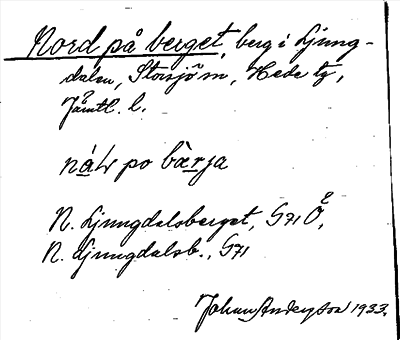 Nord på berget, berg i Ljung-
dalen, Storsjö sn, Hede tg,
Jämtl. l.
po bàrja
N. Ljungdalsberget, G71 Ö,
N. Ljungdalsb., G71
Johan Anderson 1933.